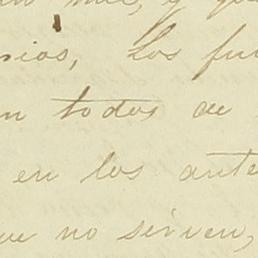 mil, y q
nios, Los fu
n todos de
en los ante
ue no sirven,